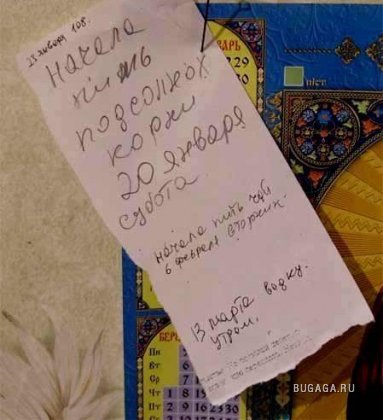 23 января 108.
Начала
пить
подсолнух
корни
20 января
суббота
начала пить чай
6 февраля вторник.
13 марта водку.
утром.
ВАРЬ
22 29
30
31
БЕРЕ
Пн 5
Вт 6
Ср 7
Чт 1 8
Пт 2 9
3 10
4 11
18
BUGAGA.RU